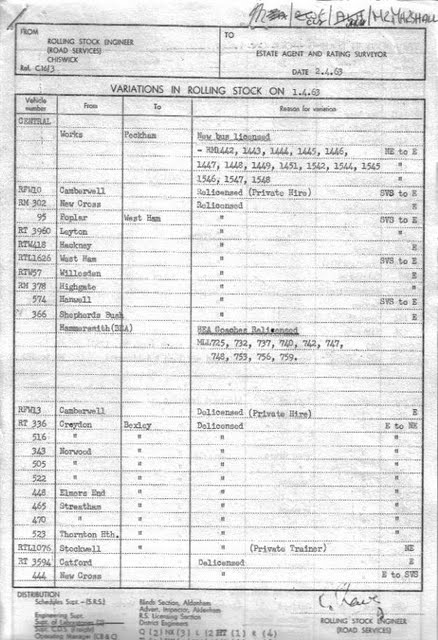 MR MARSHALL
FROM
ROLLING STOCK ENGINEER
(ROAD SERVICES)
CHISWICK
Ref. C16/3
TO
ESTATE AGENT AND RATING SURVEYOR
DATE 2.4.63
VARIATIONS IN ROLLING STOCK ON 1.4.63
Vehicle number From To Reason for variation
CENTRAL
Works Peckham New bus licensed
- RM1442, 1443, 1444, 1445, 1446, NE to E
1447, 1448, 1449, 1451, 1542, 1544, 1545 "
1546, 1547, 1548 "
RFW10 Camberwell Relicensed (Private Hire) SVS to E
RM 302 New Cross Relicensed E
95 Poplar West Ham " SVS to E
RT 3960 Leyton " "
RTW418 Hackney " E
RTL1626 West Ham " SVS to E
RTW57 Willesden " E
RM 378 Highgate " "
574 Hanwell " SVS to E
366 Shepherds Bush " E
Hammersmith(BEA) BEA Coaches Relicensed
MLL725, 732, 737, 740, 742, 747,
748, 753, 756, 759.
RFW13 Camberwell Delicensed (Private Hire) E
RT 336 Croydon Bexley Delicensed E to NE
516 " " " "
343 Norwood " " "
505 " " " "
522 " " " "
448 Elmers End " " "
465 Streatham " " "
470 " " " "
523 Thornton Hth. " " "
RTL1076 Stockwell " (Private Trainer) NE
RT 3594 Catford Delicensed E
444 New Cross " E to SVS
DISTRIBUTION
Schedules Supt.-(S.R.S.)
Engineering Supt.
Supt. of Laboratories (2)
Supt. C.D.S. (Freight)
Operating Manager (CB &
Blinds Section, Aldenham
Advert. Inspector, Aldenham
R.S. Licensing Section
District Engineers
ROLLING STOCK ENGINEER
(ROAD SERVICES)